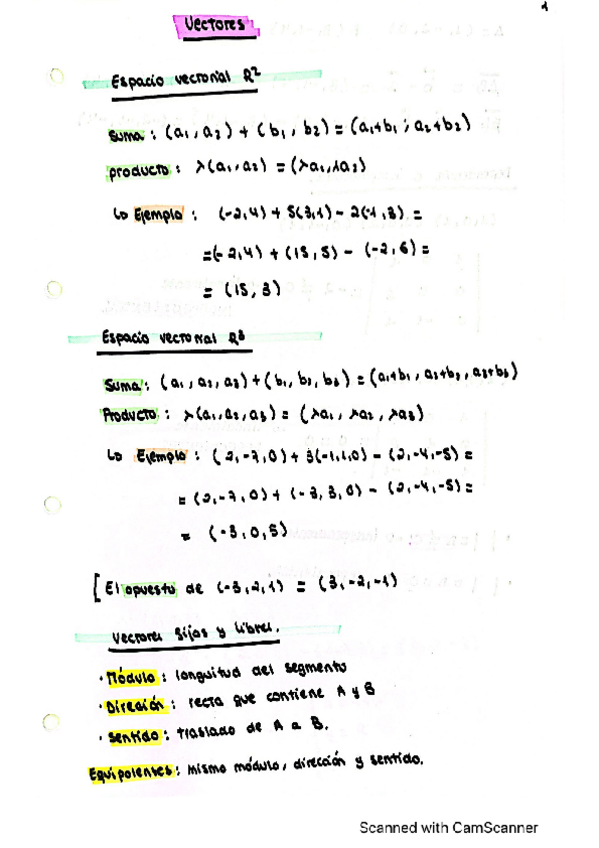 1
Vectores
Espacio vectorial R²
Suma : (a₁, a₂) + (b₁, b₂) = (a₁+b₁ ; a₂+b₂)
producto : λ(a₁, a₂) = (λa₁, λa₂)
↳ Ejemplo : (-2,4) + 5(3,1) - 2(-1,3) =
=(-2,4) + (15,5) - (-2,6) =
= (15,3)
Espacio vectorial R³
Suma : (a₁, a₂, a₃) + (b₁, b₂, b₃) = (a₁+b₁, a₂+b₂, a₃+b₃)
Producto : λ(a₁, a₂, a₃) = (λa₁, λa₂, λa₃)
↳ Ejemplo : (2,-7,0) + 3(-1,1,0) - (2,-4,-5) =
= (2,-7,0) + (-3,3,0) - (2,-4,-5) =
= (-3,0,5)
[ El opuesto de (-3,2,1) = (3,-2,-1)
Vectores fijos y libres.
· Módulo : longuitud del segmento
· Direción : recta que contiene A y B
· Sentido : traslado de A a B.
Equipolentes : mismo módulo, dirección y sentido.
Scanned with CamScanner